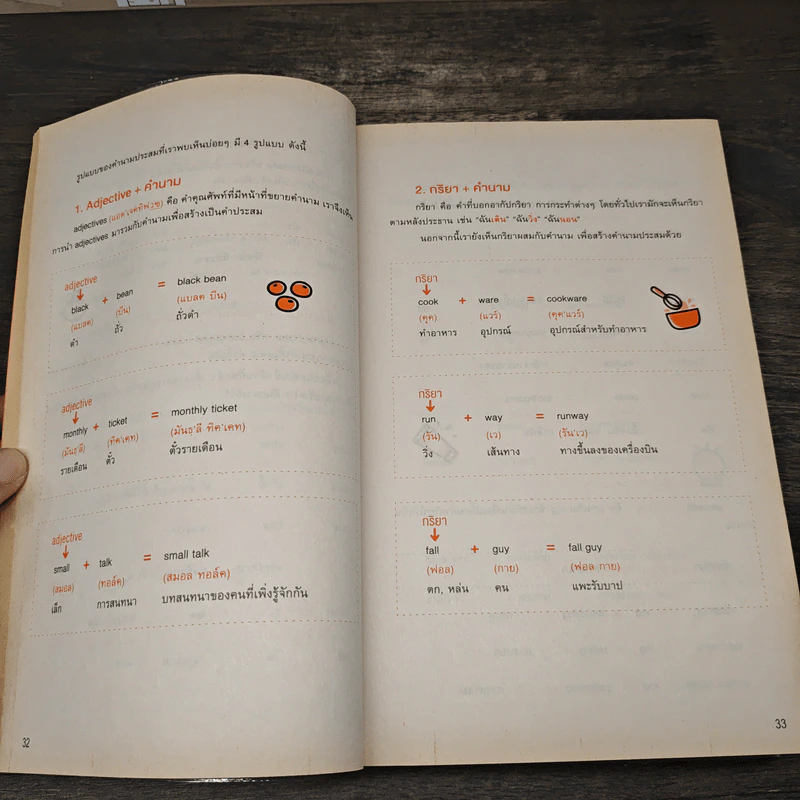 รูปแบบของคำนามประสมที่เราพบเห็นบ่อยๆ มี 4 รูปแบบ ดังนี้
1. Adjective + คำนาม
adjectives (แอด'เจคทิฟวฺซ) คือ คำคุณศัพท์ที่มีหน้าที่ขยายคำนาม เราจึงเห็น
การนำ adjectives มารวมกับคำนามเพื่อสร้างเป็นคำประสม
adjective
black + bean = black bean
(แบลค) (บีน) (แบลค บีน)
ดำ ถั่ว ถั่วดำ
adjective
monthly + ticket = monthly ticket
(มันธฺ'ลี) (ทิค'เคท) (มันธฺ'ลี ทิค'เคท)
รายเดือน ตั๋ว ตั๋วรายเดือน
adjective
small + talk = small talk
(สมอล) (ทอล์ค) (สมอล ทอล์ค)
เล็ก การสนทนา บทสนทนาของคนที่เพิ่งรู้จักกัน
32
2. กริยา + คำนาม
กริยา คือ คำที่บอกอากัปกริยา การกระทำต่างๆ โดยทั่วไปเรามักจะเห็นกริยา
ตามหลังประธาน เช่น "ฉันเดิน" "ฉันวิ่ง" "ฉันนอน"
นอกจากนี้เรายังเห็นกริยาผสมกับคำนาม เพื่อสร้างคำนามประสมด้วย
กริยา
cook + ware = cookware
(คุค) (แวร์) (คุค'แวร์)
ทำอาหาร อุปกรณ์ อุปกรณ์สำหรับทำอาหาร
กริยา
run + way = runway
(รัน) (เว) (รัน'เว)
วิ่ง เส้นทาง ทางขึ้นลงของเครื่องบิน
กริยา
fall + guy = fall guy
(ฟอล) (กาย) (ฟอล กาย)
ตก, หล่น คน แพะรับบาป
33